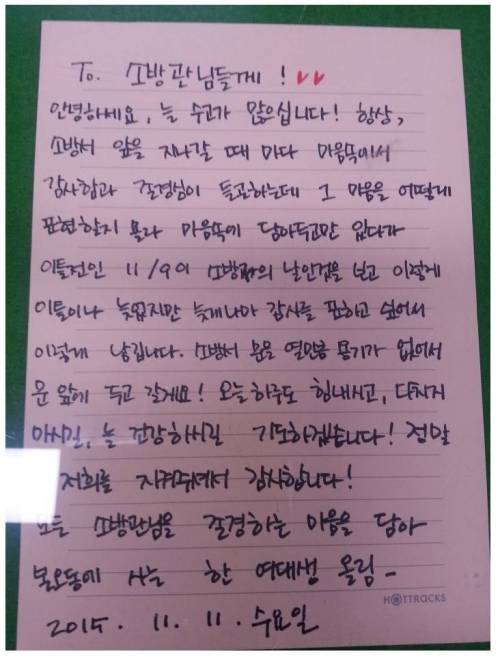 To. 소방관님들께 !
안녕하세요, 늘 수고가 많으십니다! 항상,
소방서 앞을 지나갈 때 마다 마음속에서
감사함과 존경심이 들곤하는데 그 마음을 어떻게
표현할지 몰라 마음속에 담아두고만 있다가
이틀전인 11/9이 소방관의 날인것을 보고 이렇게
이틀이나 늦었지만 늦게나마 감사를 표하고 싶어서
이렇게 남깁니다. 소방서 문을 열만큼 용기가 없어서
문 앞에 두고 갈게요! 오늘하루도 힘내시고, 다치지
마시길, 늘 건강하시길 기도하겠습니다! 정말
저희를 지켜주셔서 감사합니다!
모든 소방관님을 존경하는 마음을 담아
불오동에 사는 한 여대생 올림-
HOTTRACKS
2015. 11. 11. 수요일